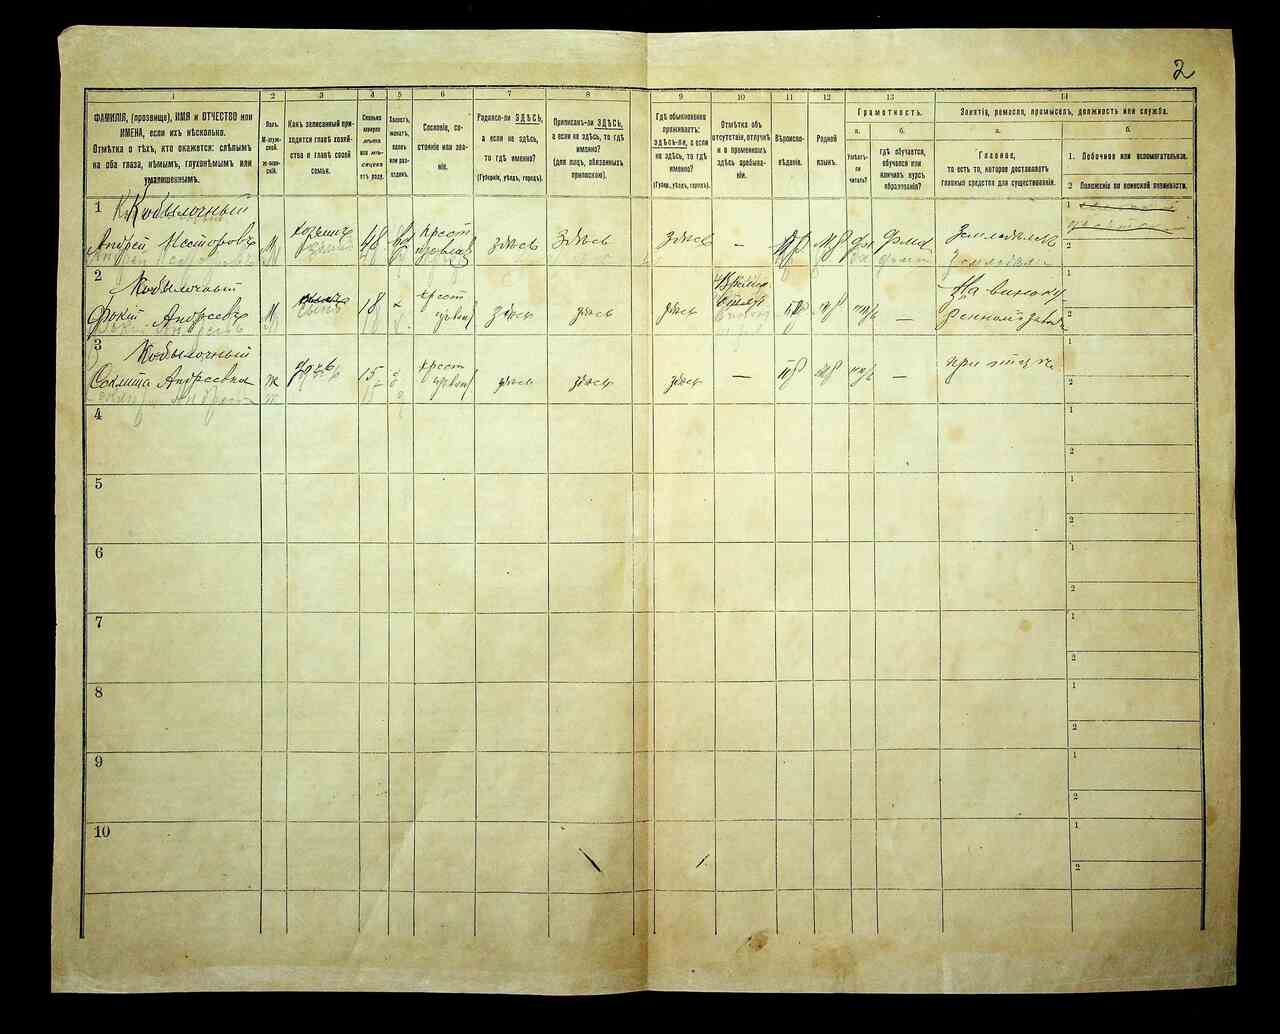 2
1 2 3 4 5 6 7 8 9 10 11 12 13 14
ФАМИЛІЯ, (прозвище), ИМЯ и ОТЧЕСТВО или
ИМЕНА, если ихъ нѣсколько.
Отмѣтка о тѣхъ, кто окажется: слѣпымъ
на оба глаза, нѣмымъ, глухонѣмымъ или
умалишеннымъ.
Полъ.
М-муж-
ской.
Ж-жен-
скій.
Какъ записанный при-
ходится главѣ хозяй-
ства и главѣ своей
семьи.
Сколько
минуло
лѣтъ
или мѣ-
сяцевъ
отъ роду.
Холостъ,
женатъ,
вдовъ
или раз-
веденъ.
Сословіе, со-
стояніе или зва-
ніе.
Родился-ли ЗДѢСЬ,
а если не здѣсь,
то гдѣ именно?
(Губернія, уѣздъ, городъ).
Приписанъ-ли ЗДѢСЬ,
а если не здѣсь, то гдѣ
именно?
(для лицъ, обязанныхъ
припискою).
Гдѣ обыкновенно
проживаетъ:
здѣсь-ли, а если
не здѣсь, то гдѣ
именно?
(Губерн., уѣздъ, городъ).
Отмѣтка объ
отсутствіи, отлучкѣ
и о временномъ
здѣсь пребыва-
ніи.
Вѣроиспо-
вѣданіе.
Родной
языкъ.
Грамотность.
а.
Умѣетъ-
ли
читать?
б.
гдѣ обучается,
обучался или
кончилъ курсъ
образованія?
Занятіе, ремесло, промыселъ, должность или служба.
а.
Главное,
то есть то, которое доставляетъ
главныя средства для существованія.
б.
1. Побочное или вспомогательное.
2 Положеніе по воинской повинности.
1 Кобылочный
Андрей Несторовъ М хозяинъ 48 крест здѣсь здѣсь здѣсь —
1
2
2 Кобылочный
Фокій Андреевъ М сынъ 18 х крест здѣсь здѣсь здѣсь —
На виноку
ренномъ заводѣ
1
2
3 Кобылочный
Андреевна ж дочь 15 крест здѣсь здѣсь здѣсь — —
при отцѣ
1
2
4
1
2
5
1
2
6
1
2
7
1
2
8
1
2
9
1
2
10
1
2